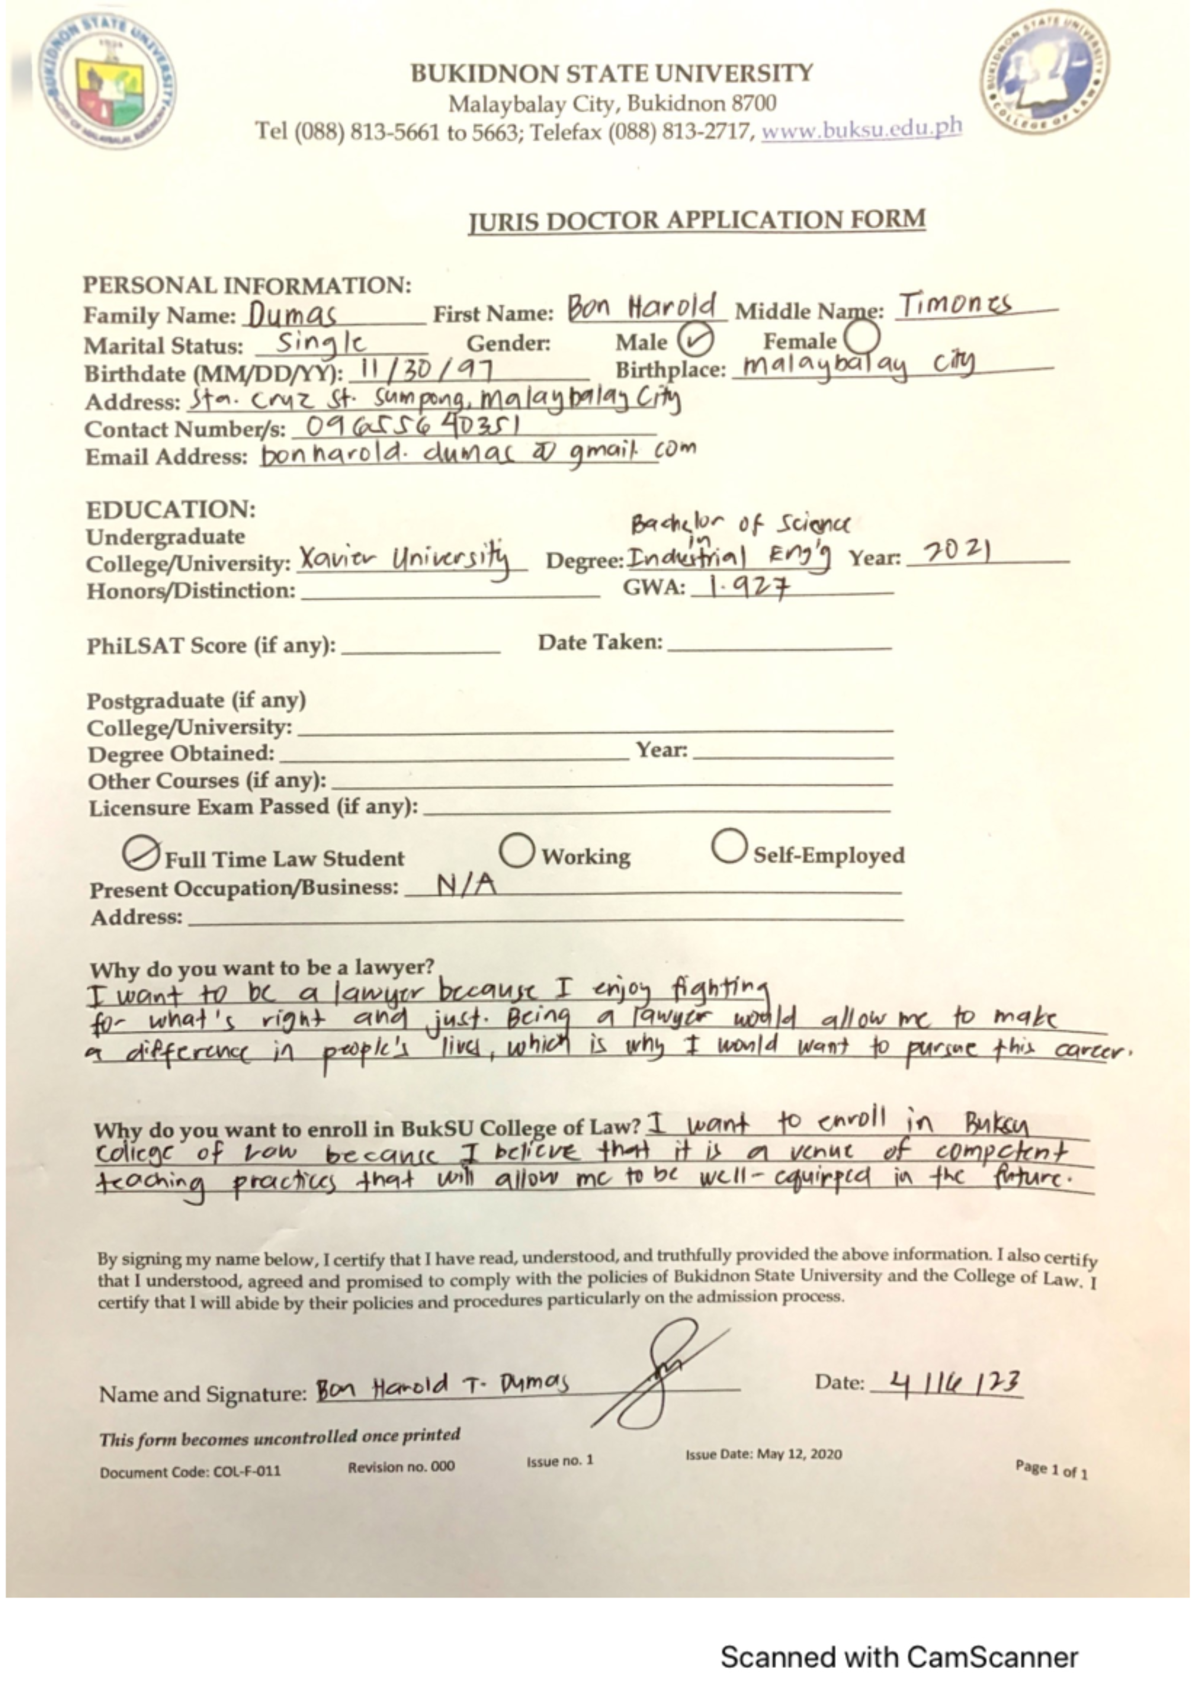 BUKIDNON STATE UNIVERSITY
Malaybalay City, Bukidnon 8700
Tel (088) 813-5661 to 5663; Telefax (088) 813-2717, www.buksu.edu.ph
JURIS DOCTOR APPLICATION FORM
PERSONAL INFORMATION:
Family Name: Dumas First Name: Bon Harold Middle Name: Timones
Marital Status: Single Gender: Male Female
Birthdate (MM/DD/YY): 11/30/97 Birthplace: malaybalay city
Address: Sta. Cruz St. Sumpong, Malaybalay City
Contact Number/s: 09655640351
Email Address: bonharold.dumas@gmail.com
EDUCATION:
Undergraduate Bachelor of Science
in
College/University: Xavier University Degree: Industrial Eng'g Year: 2021
Honors/Distinction: GWA: 1.927
PhiLSAT Score (if any): Date Taken:
Postgraduate (if any)
College/University:
Degree Obtained: Year:
Other Courses (if any):
Licensure Exam Passed (if any):
Full Time Law Student Working Self-Employed
Present Occupation/Business: N/A
Address:
Why do you want to be a lawyer?
I want to be a lawyer because I enjoy fighting
for what's right and just. Being a lawyer would allow me to make
a difference in people's lives, which is why I would want to pursue this career.
Why do you want to enroll in BukSU College of Law? I want to enroll in Buksu
College of Law because I believe that it is a venue of competent
teaching practices that will allow me to be well-equipped in the future.
By signing my name below, I certify that I have read, understood, and truthfully provided the above information. I also certify
that I understood, agreed and promised to comply with the policies of Bukidnon State University and the College of Law. I
certify that I will abide by their policies and procedures particularly on the admission process.
Name and Signature: Bon Harold T. Dumas Date: 4/16/23
This form becomes uncontrolled once printed
Document Code: COL-F-011 Revision no. 000 Issue no. 1 Issue Date: May 12, 2020 Page 1 of 1
Scanned with CamScanner